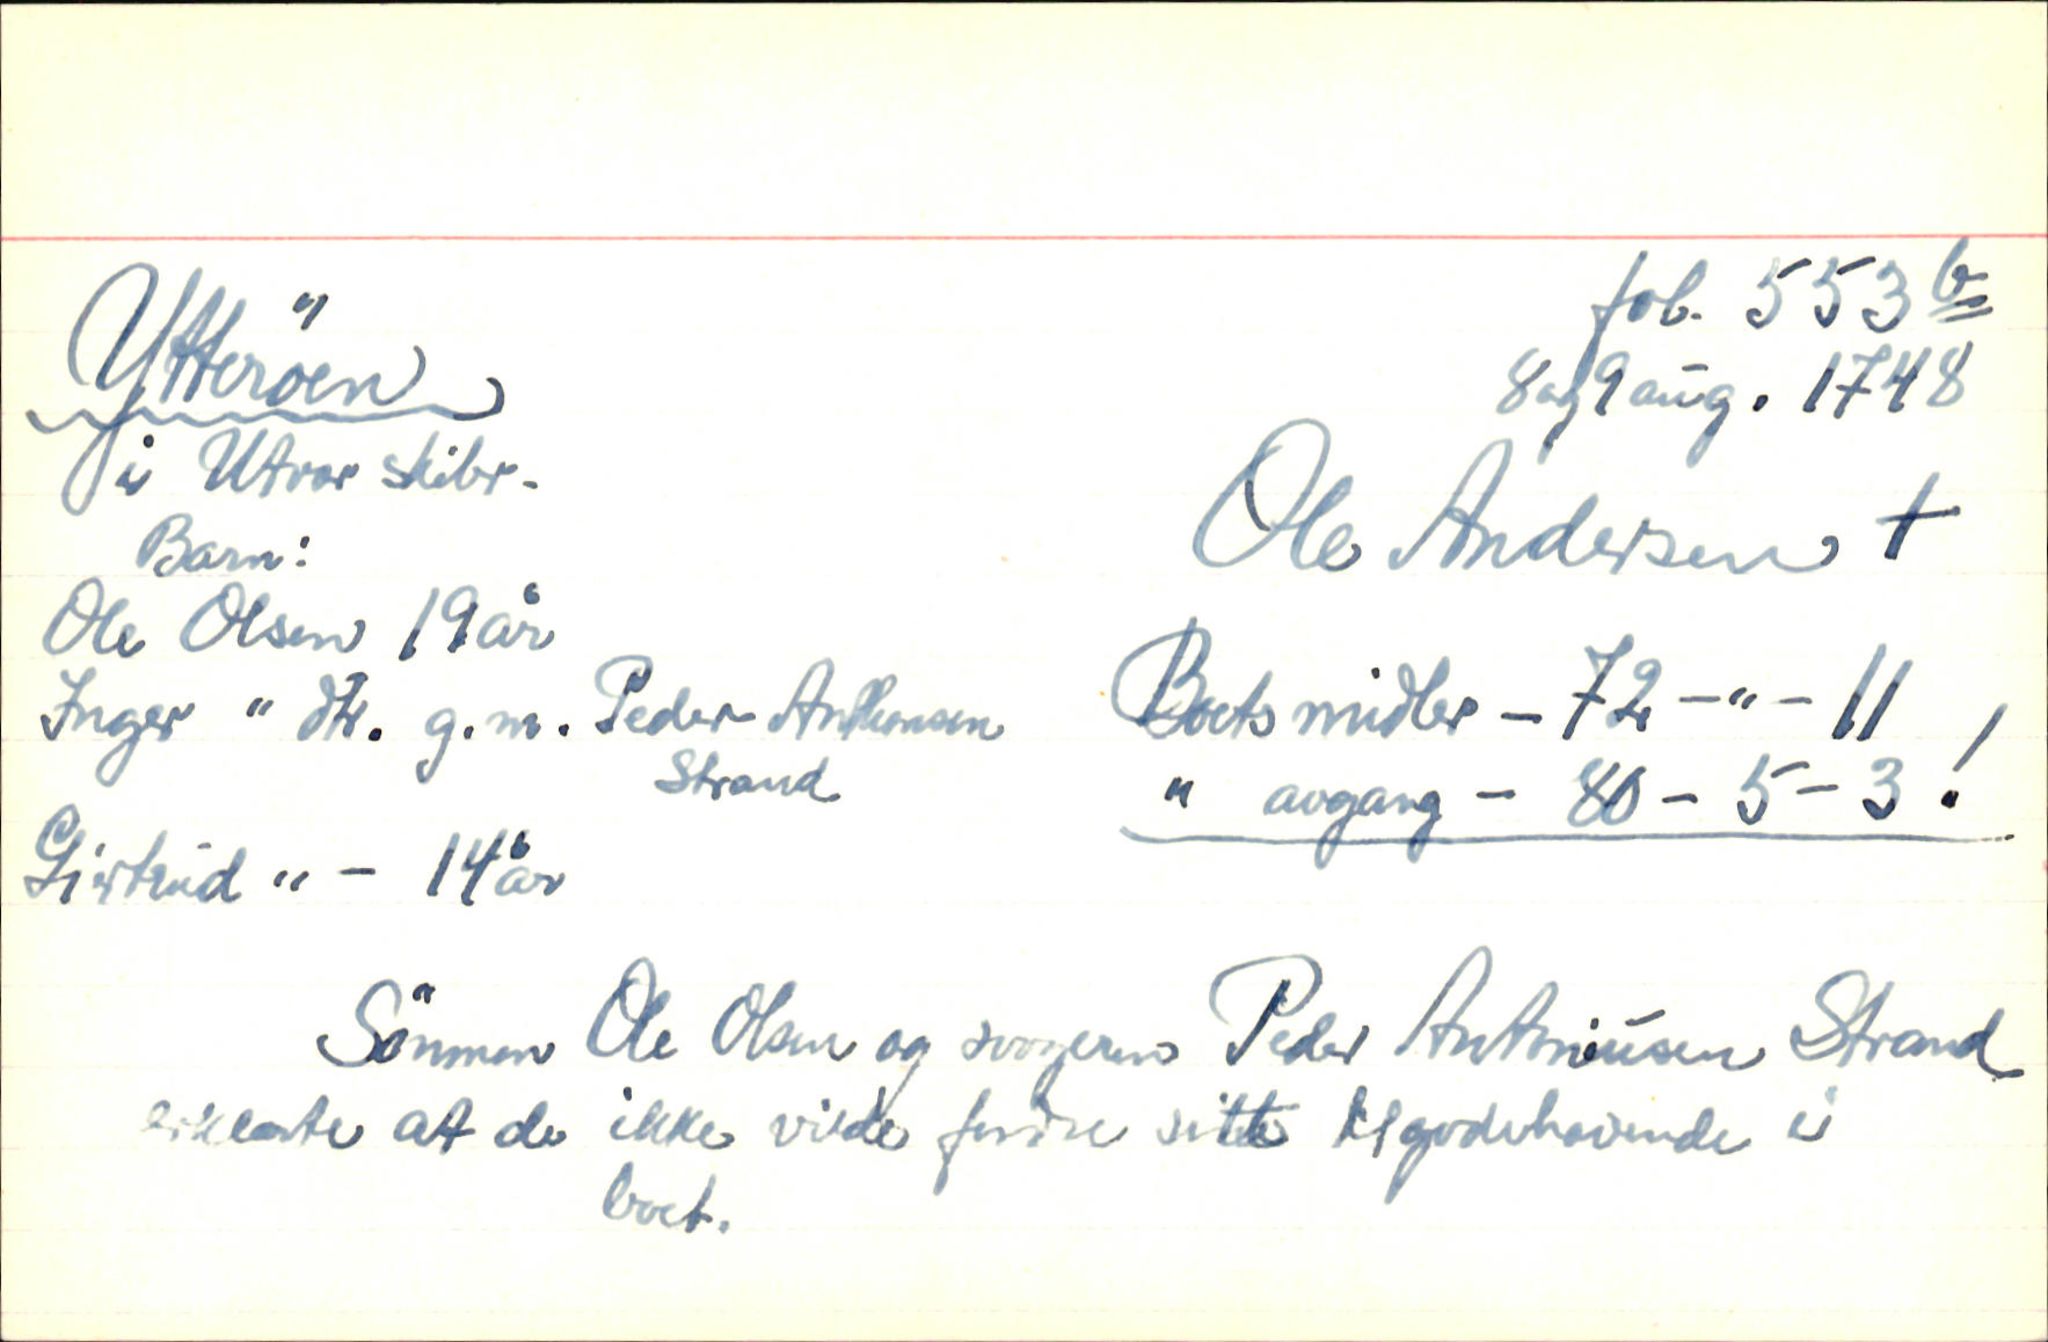 fol. 553 b
Ytteröen 8 og 9 aug. 1748
i Utvær skibr.
Ole Andersen †
Barn:
Ole Olsen 19 år
Inger " dtr. g. m. Peder Anthonsen
Strand
Boets midler – 72 – " – 11
" avgang – 80 – 5 – 3!
Girtrud " – 14 år
Sönnen Ole Olsen og svogeren Peder Antoniusen Strand
erklærte at de ikke vilde fordre sitt tilgodehavende i
boet.